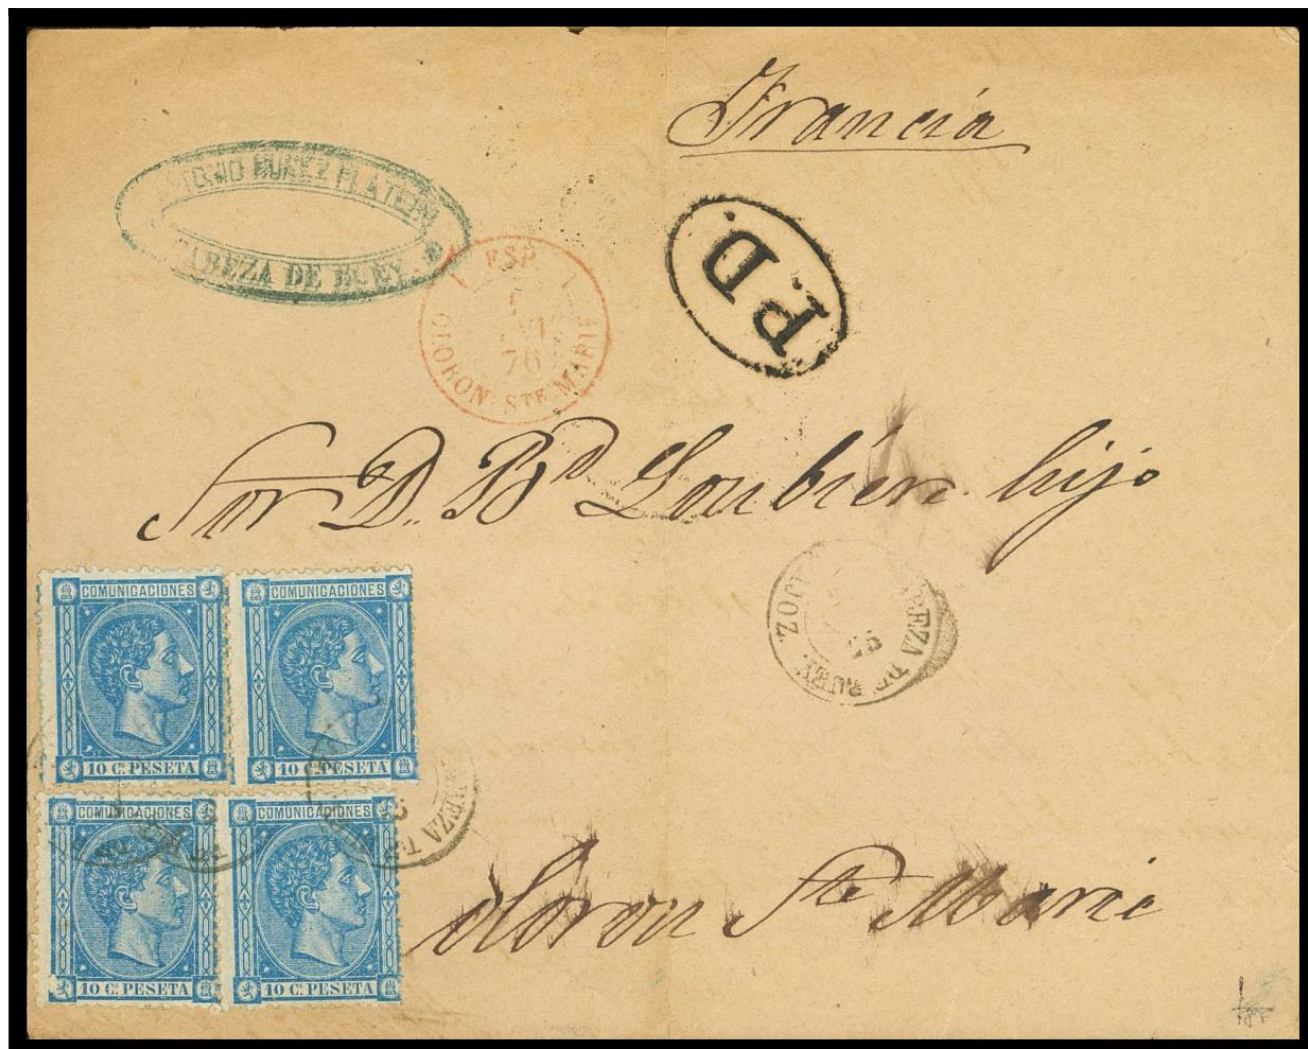 Francia
ANTONIO NUÑEZ PLATERO
CABEZA DE BUEY.
P.D.
ESP.
76
OLORON-STE-MARIE
Sor D. Bd Loubière hijo
BEZA DE BUEY.
JOZ.
COMUNICACIONES
10 C. PESETA
COMUNICACIONES
10 C. PESETA
BEZA DE
COMUNICACIONES
10 C. PESETA
COMUNICACIONES
10 C. PESETA
oloron Ste Marie